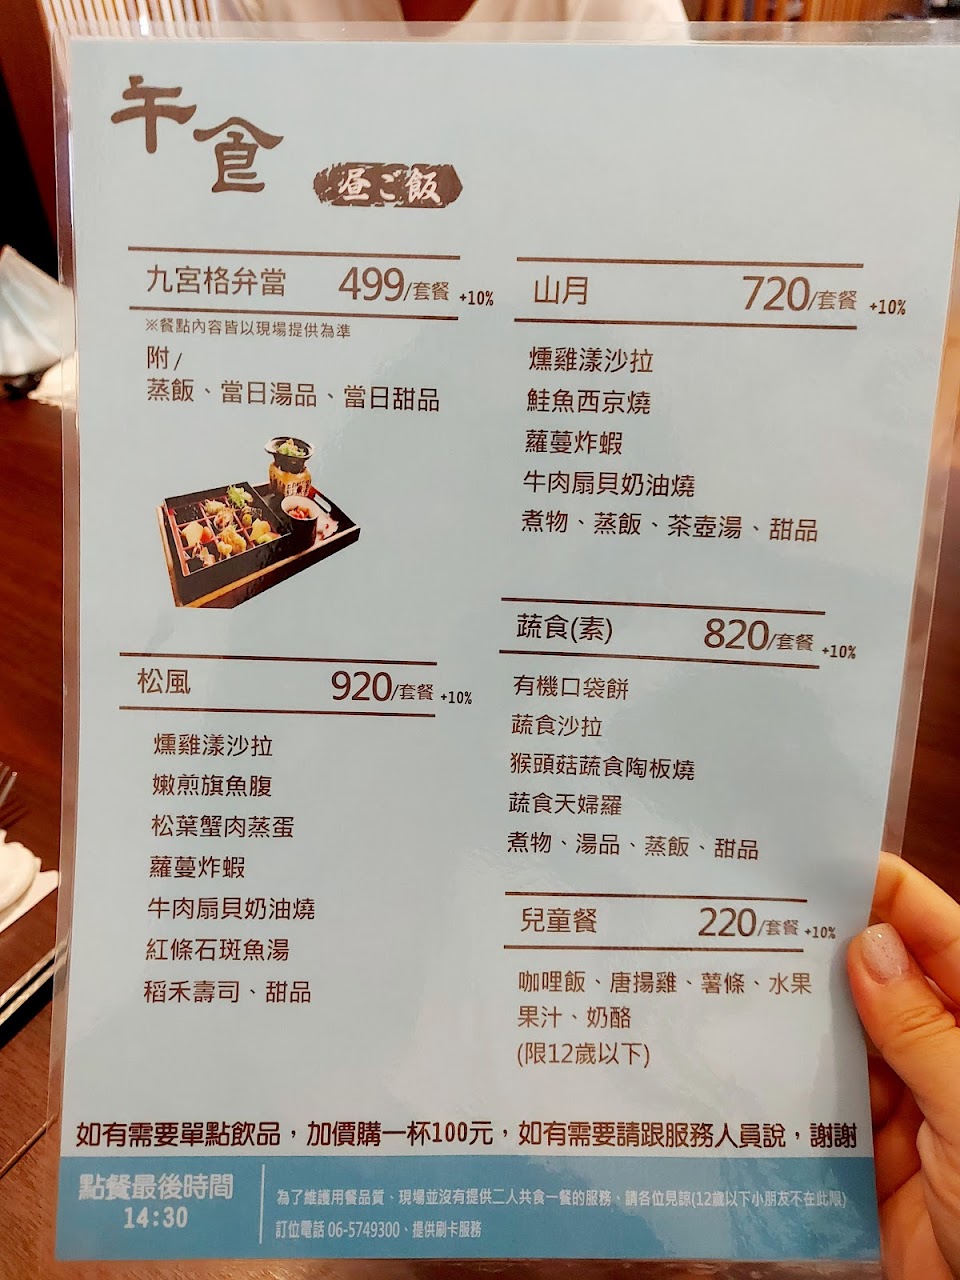 午食
昼ご飯
九宮格弁當 499/套餐 +10%
※餐點內容皆以現場提供為準
附/
蒸飯、當日湯品、當日甜品
松風 920/套餐 +10%
燻雞漾沙拉
嫩煎旗魚腹
松葉蟹肉蒸蛋
蘿蔓炸蝦
牛肉扇貝奶油燒
紅條石斑魚湯
稻禾壽司、甜品
山月 720/套餐 +10%
燻雞漾沙拉
鮭魚西京燒
蘿蔓炸蝦
牛肉扇貝奶油燒
煮物、蒸飯、茶壺湯、甜品
蔬食(素) 820/套餐 +10%
有機口袋餅
蔬食沙拉
猴頭菇蔬食陶板燒
蔬食天婦羅
煮物、湯品、蒸飯、甜品
兒童餐 220/套餐 +10%
咖哩飯、唐揚雞、薯條、水果
果汁、奶酪
(限12歲以下)
如有需要單點飲品，加價購一杯100元，如有需要請跟服務人員說，謝謝
點餐最後時間
14:30
為了維護用餐品質、現場並沒有提供二人共食一餐的服務、請各位見諒(12歲以下小朋友不在此限)
訂位電話 06-5749300、提供刷卡服務